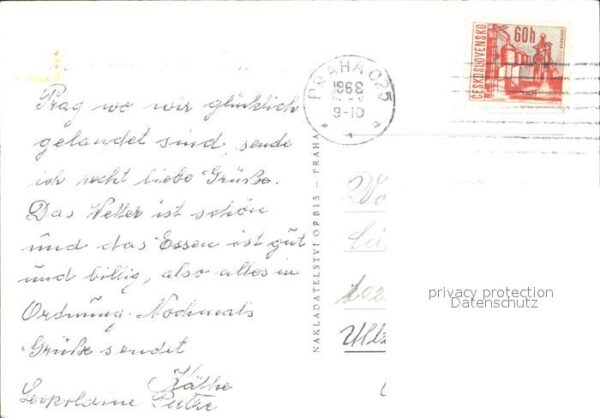 Prag wo wir glücklich
gelandet sind, sende
ich recht liebe Grüße.
Das Wetter ist schön
und das Essen ist gut
und billig, also alles in
Ordnung. Nochmals
Grüße sendet
Käthe
Leopoldine
NAKLADATELSTVÍ ORBIS – PRAHA
PRAHA 025
1968
9-10
ČESKOSLOVENSKO
60h
privacy protection
Datenschutz